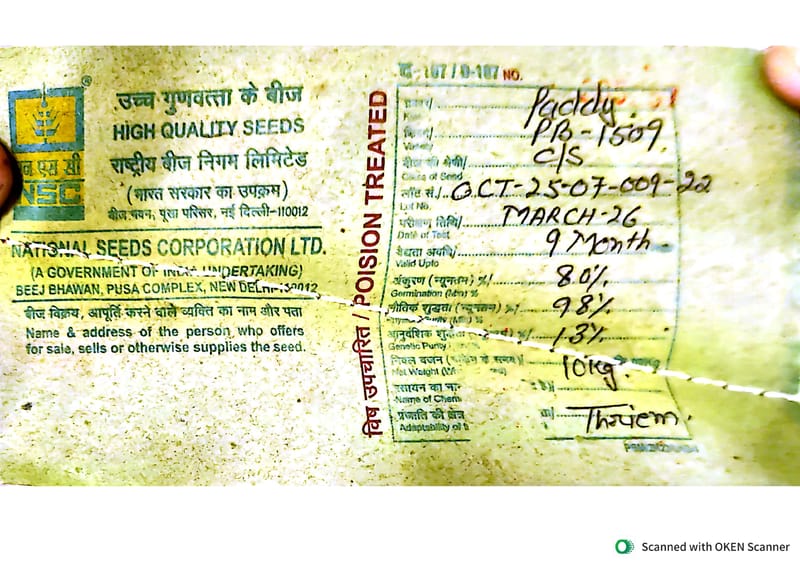 उच्च गुणवत्ता के बीज
HIGH QUALITY SEEDS
राष्ट्रीय बीज निगम लिमिटेड
(भारत सरकार का उपक्रम)
बीज भवन, पूसा परिसर, नई दिल्ली-110012
एन एस सी
NSC
®
NATIONAL SEEDS CORPORATION LTD.
(A GOVERNMENT OF INDIA UNDERTAKING)
BEEJ BHAWAN, PUSA COMPLEX, NEW DELHI-110012
बीज विक्रय, आपूर्ति करने वाले व्यक्ति का नाम और पता
Name & address of the person who offers
for sale, sells or otherwise supplies the seed.
विष उपचारित / POISION TREATED
NO.
Paddy.
Variety PB-1509.
बीज की श्रेणी/ C/S
Class of Seed
लॉट सं./ OCT-25-07-009-22
Lot No.
परीक्षण तिथि/ MARCH-26
Date of Test
वैधता अवधि/ 9 Month.
Valid Upto
अंकुरण (न्यूनतम) %/ 80%
Germination (Min) %
भौतिक शुद्धता (न्यूनतम) %/ 98%
आनुवंशिक शुद्धता 13%
Genetic Purity
निवल वजन 10kg.
Net Weight
रसायन का नाम
Name of Chem
प्रजाति की क्षेत्र Thriem.
Adaptability of
Scanned with OKEN Scanner